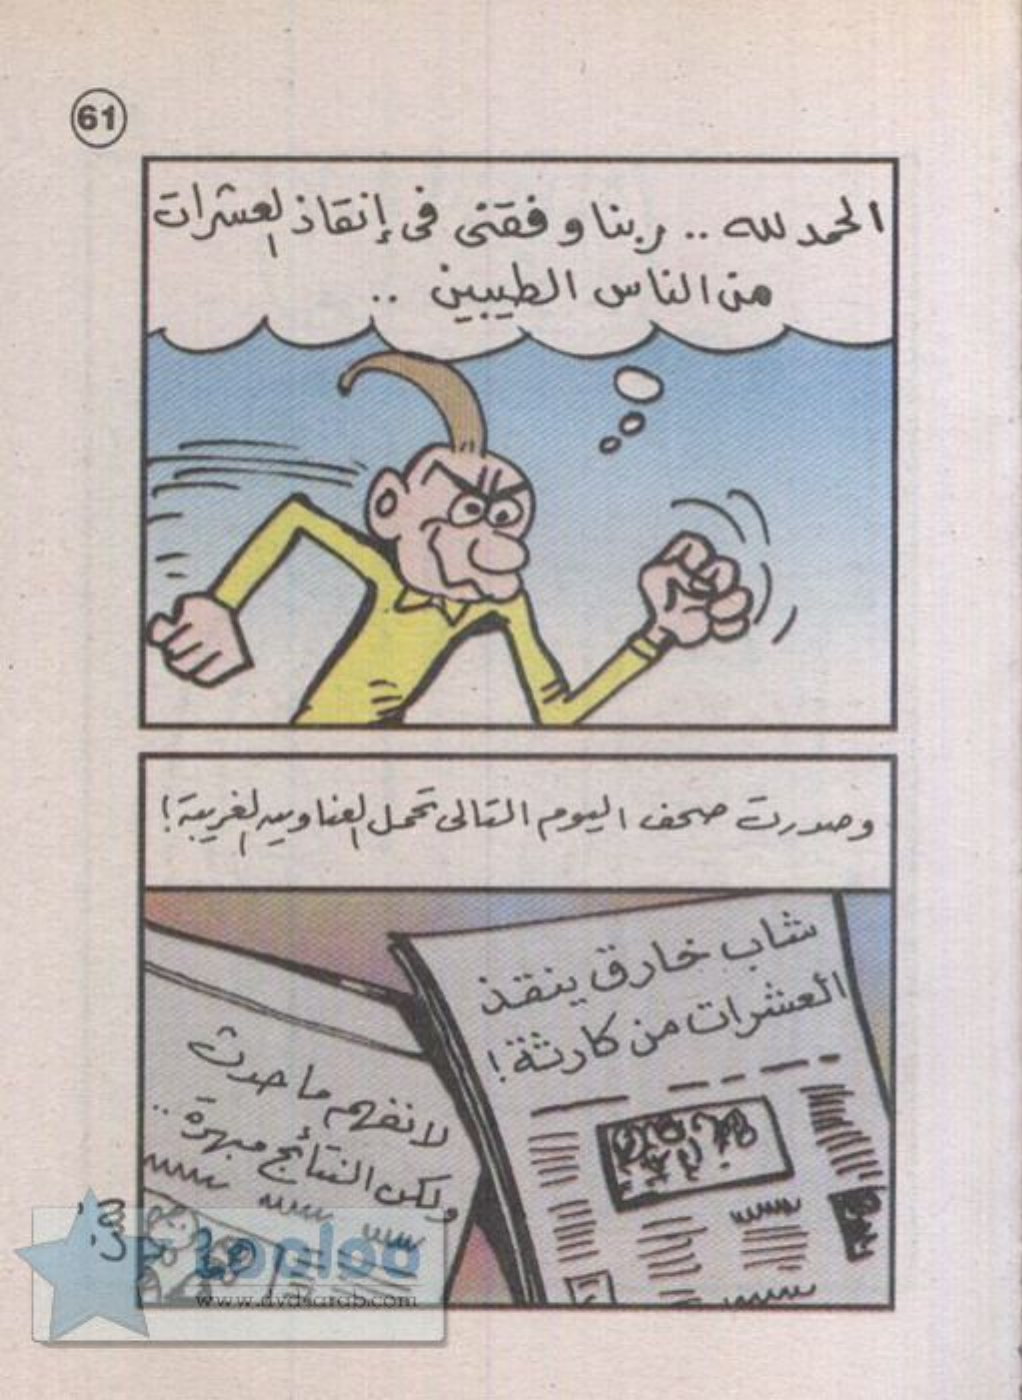 61
الحمد لله .. ربنا وفقنى فى إنقاذ العشرات
من الناس الطيبين ..
وصدرت صحف اليوم التالى تحمل العناوين الغريبة !
شاب خارق ينقذ
العشرات من كارثة !
لا نفهم ما حدث
ولكن النتائج مبهرة ..
Looloo
www.dvd4arab.com